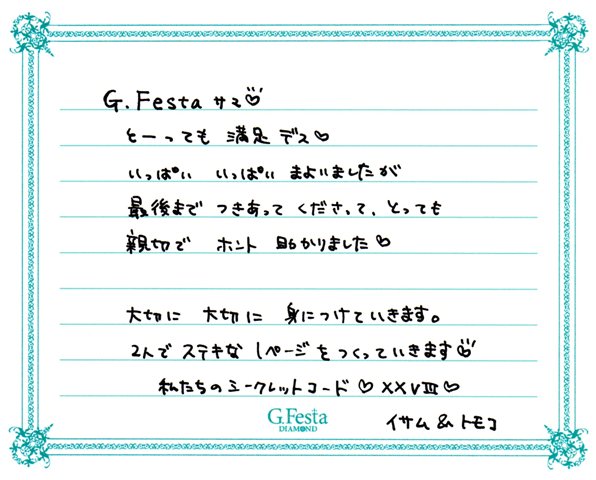 G.Festa サマ♡
とーっても 満足 デス♡
いっぱい いっぱい まよいましたが
最後まで つきあって くださって、とっても
親切で ホント 助かりました♡
大切に 大切に 身につけていきます。
2人で ステキな 1ページをつくっていきます♡
私たちのシークレットコード ♡ XXVIII ♡
G.Festa
DIAMOND
イサム & トモコ